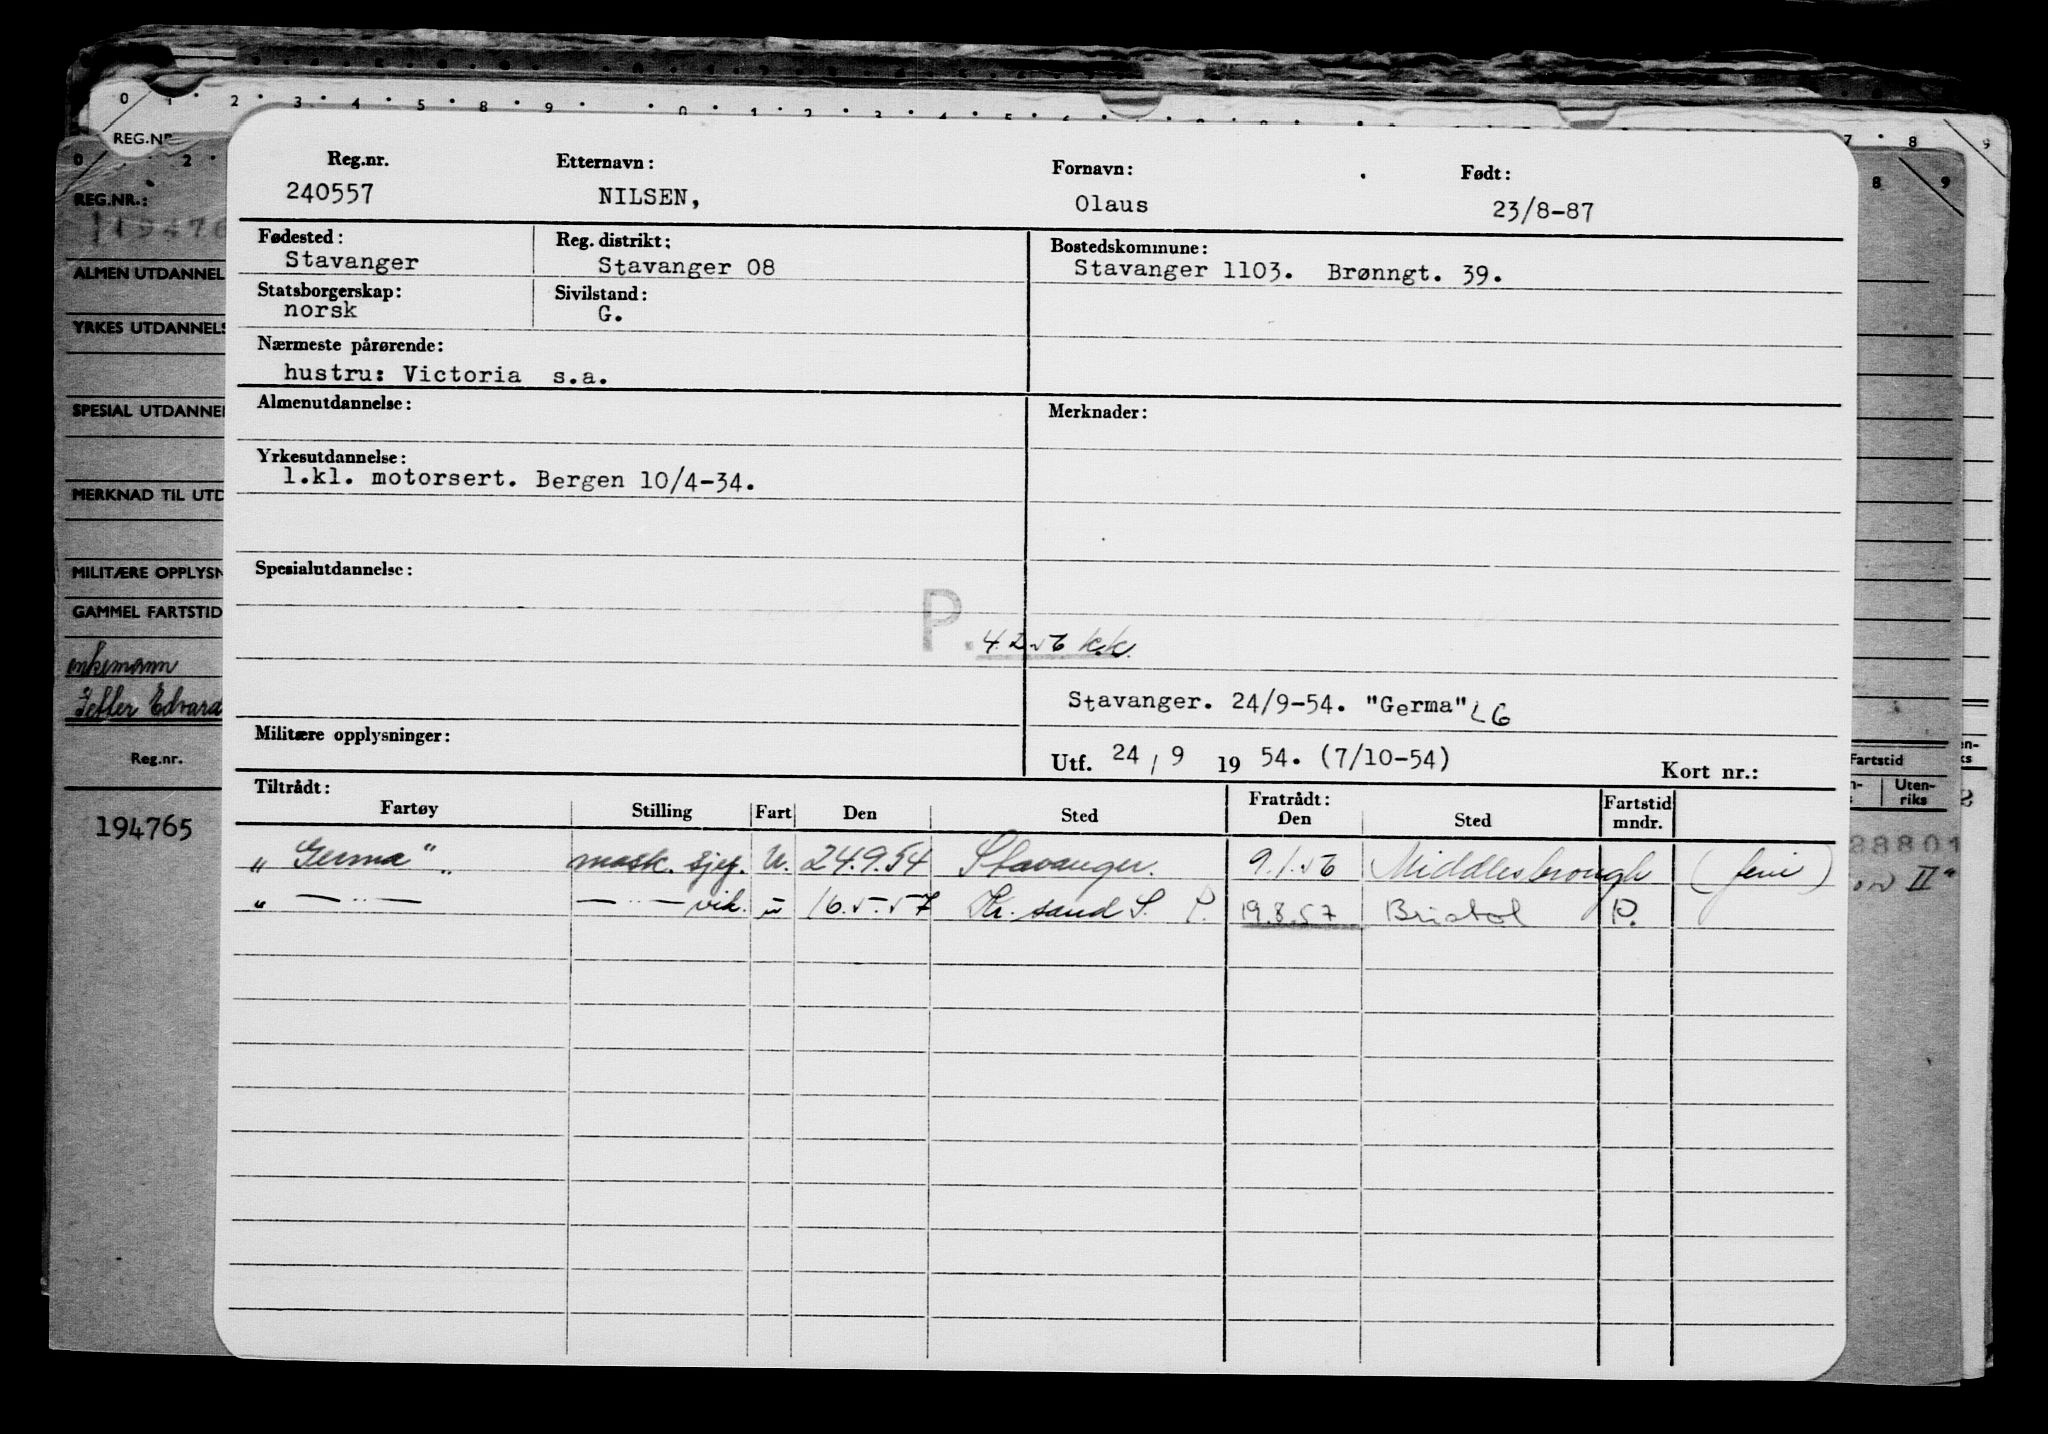 0 1 2 3 4 5 6 8 9 0 1 2 3 4 5 6 7 8 9
REG.NR
0 2 8 9
REG.NR.:
ALMEN UTDANNEL
YRKES UTDANNELS
SPESIAL UTDANNEL
MERKNAD TIL UTD
MILITÆRE OPPLYSN
GAMMEL FARTSTID
enkemann
Edvard
Reg.nr.
194765
Reg.nr. Etternavn: Fornavn: Født:
240557 NILSEN, Olaus 23/8-87
Fødested: Reg. distrikt: Bostedskommune:
Stavanger Stavanger 08 Stavanger 1103. Brønngt. 39.
Statsborgerskap: Sivilstand:
norsk G.
Nærmeste pårørende:
hustru: Victoria s.a.
Almenutdannelse: Merknader:
Yrkesutdannelse:
1.kl. motorsert. Bergen 10/4-34.
Spesialutdannelse:
P. 4.2.56 K.K.
Stavanger. 24/9-54. "Germa" LG
Militære opplysninger:
Utf. 24 / 9 19 54. (7/10-54) Kort nr.:
Tiltrådt: Fratrådt: Fartstid
Fartøy Stilling Fart Den Sted Den Sted mndr.
"Germa" mask. sjef. U. 24.9.54 Stavanger. 9.1.56 Middlesbrough (ferie)
" — " — — " — vik. u 16.5.57 Kr. sand S. P. 19.8.57 Bristol P.
Fartstid
Uten-
riks
28801
II"